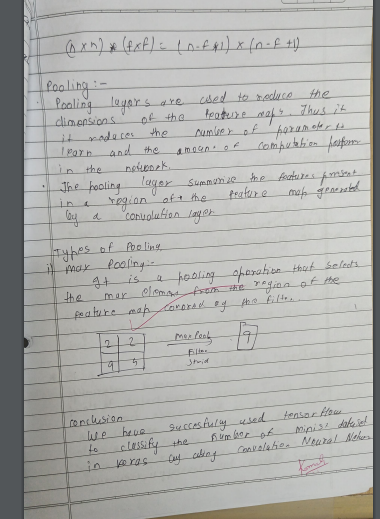 (n x n) * (f x f) = (n-f+1) x (n-f+1)
Pooling :-
Pooling layers are used to reduce the
dimensions of the feature maps. Thus it
it reduces the number of parameter to
learn and the amount of computation perform
in the network.
The pooling layer summarize the features present
in a region of the feature map generated
by a convolution layer
Types of Pooling
i) Max Pooling:-
It is a pooling operation that selects
the max element from the region of the
feature map covered by the filter.
2 2
9 5
Max Pool
Filter
9
conclusion
We have succesfully used tensorflow
to classify the number of dataset
in Keras by using Convolution Neural